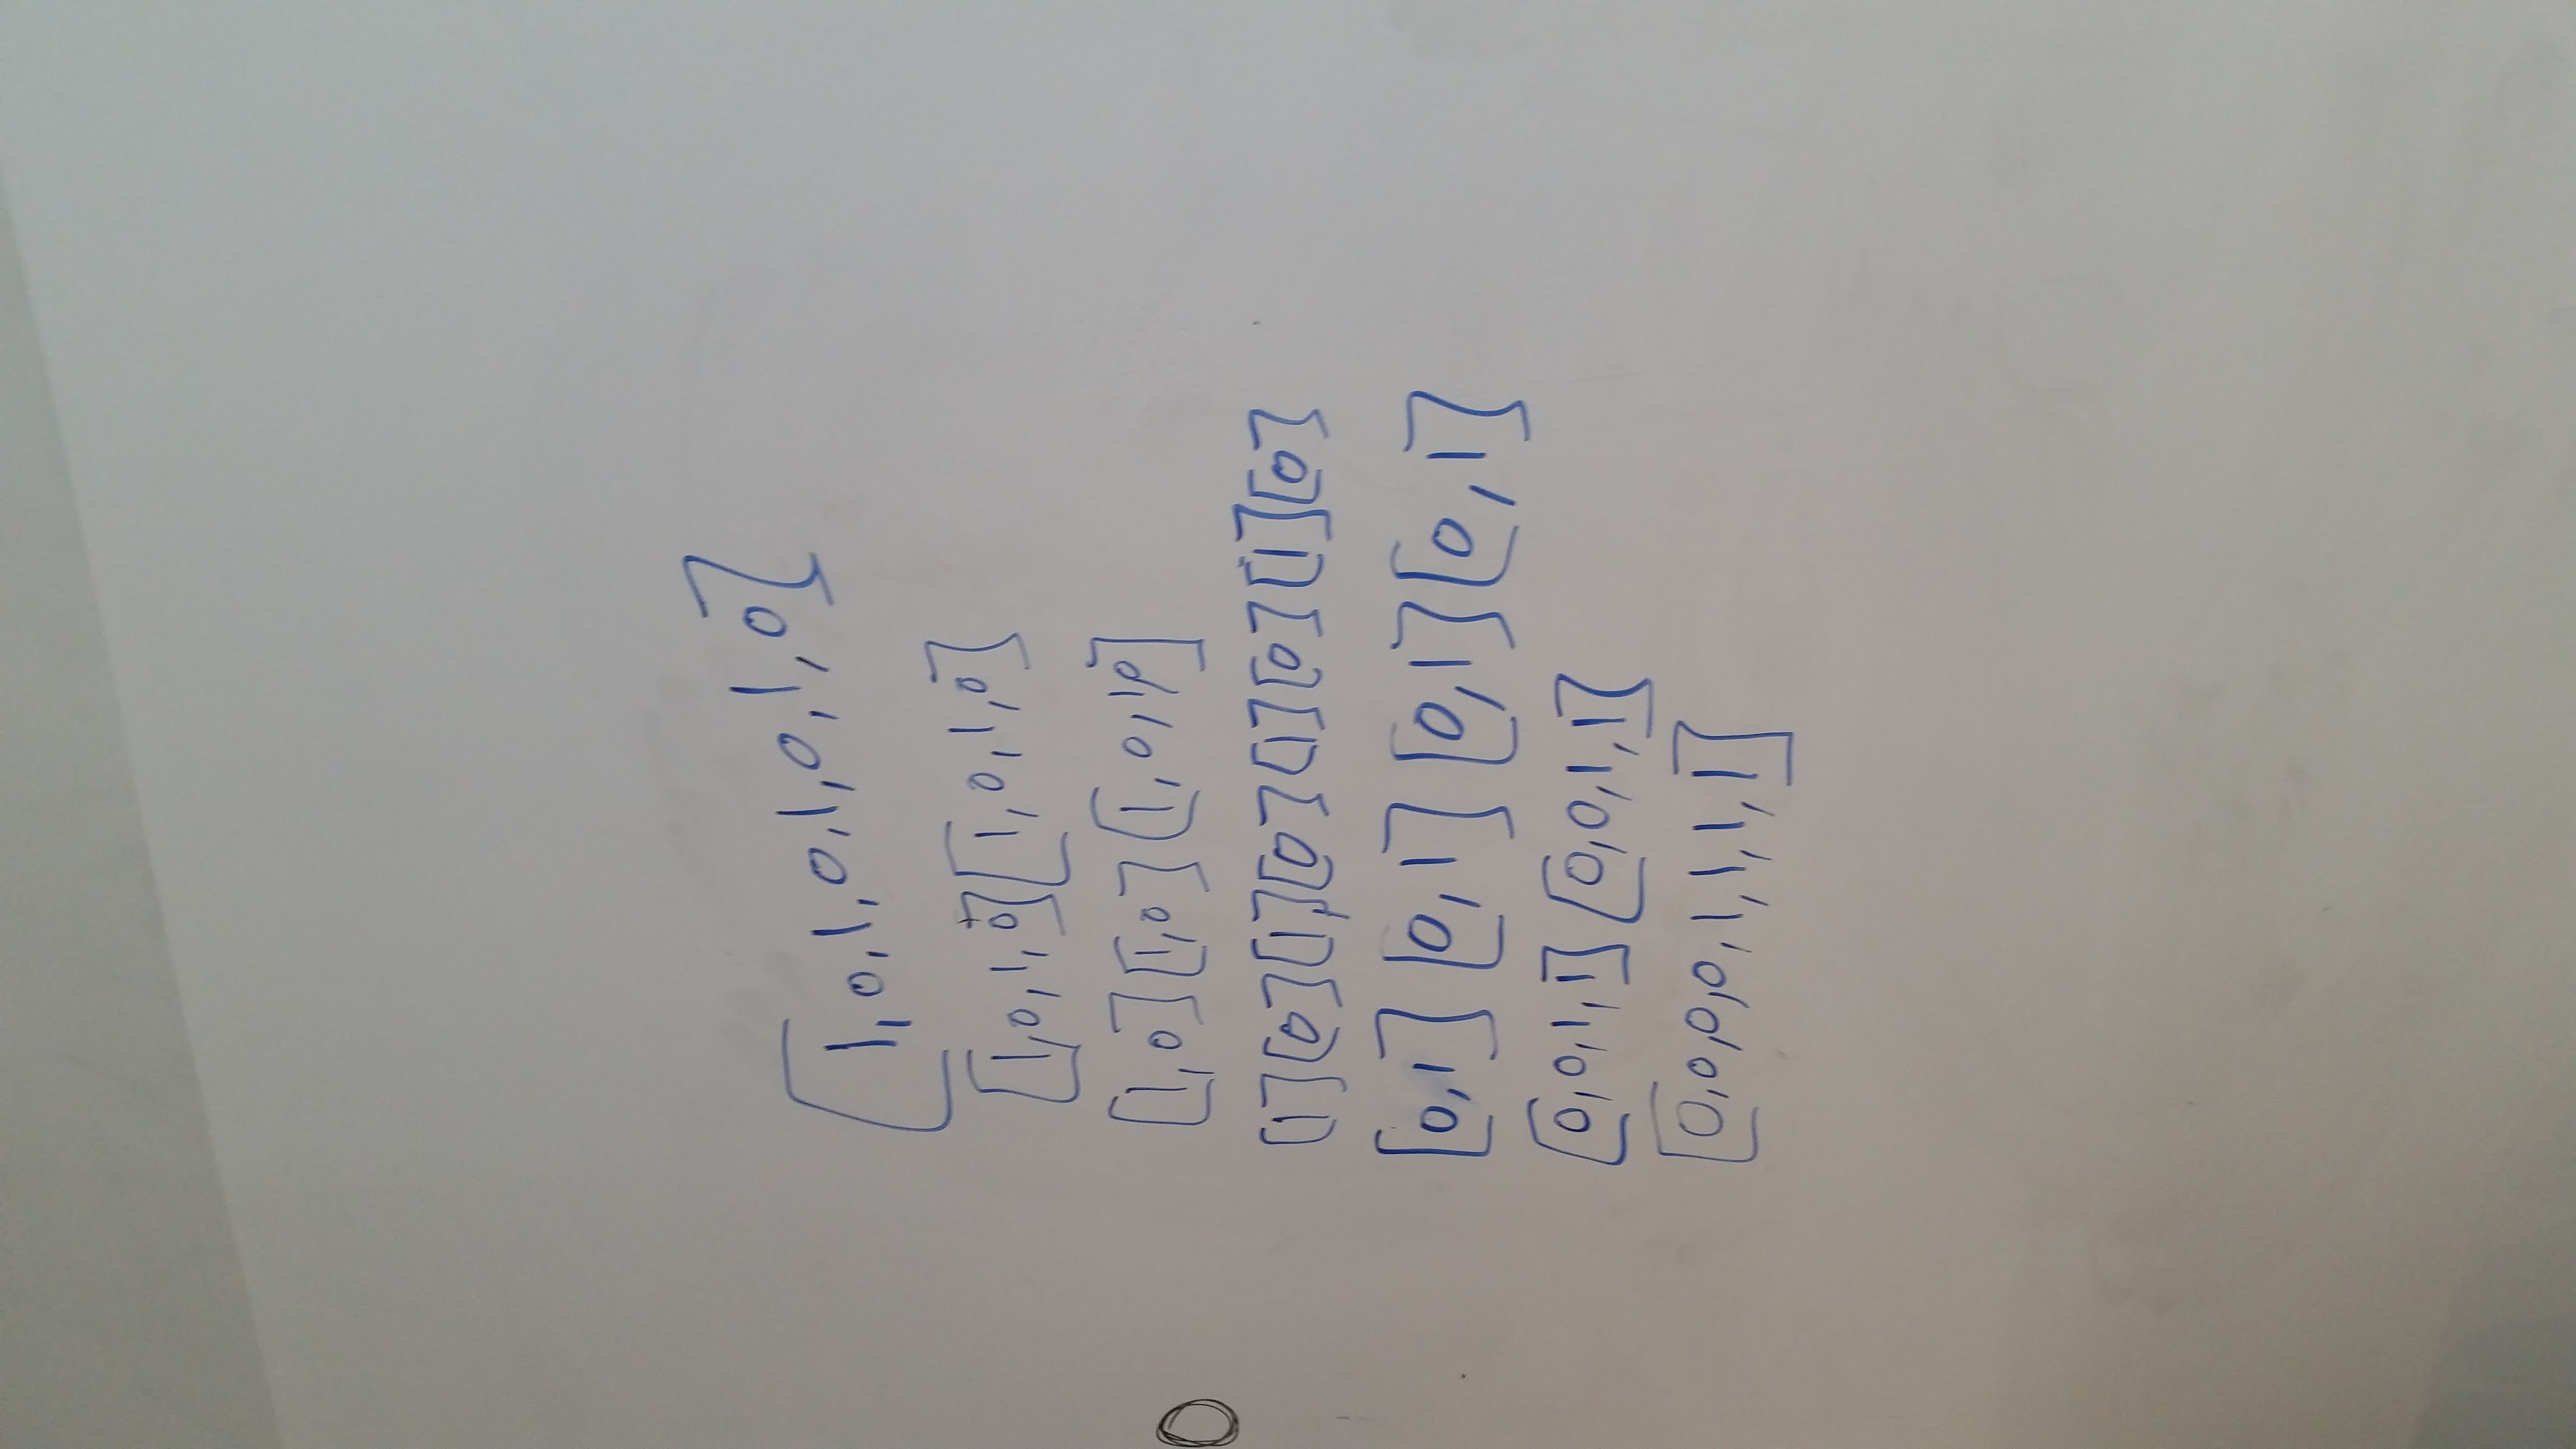 [1,0,1,0,1,0,1,0]
[1,0,1,0][1,0,1,0]
[1,0][1,0][1,0,1,0]
[1][0][1,][0][1][0][1][0]
[0,1] [0,1] [0,1][0,1]
[0,0,1,1] [0,0,1,1]
[0,0,0,0,1,1,1,1]